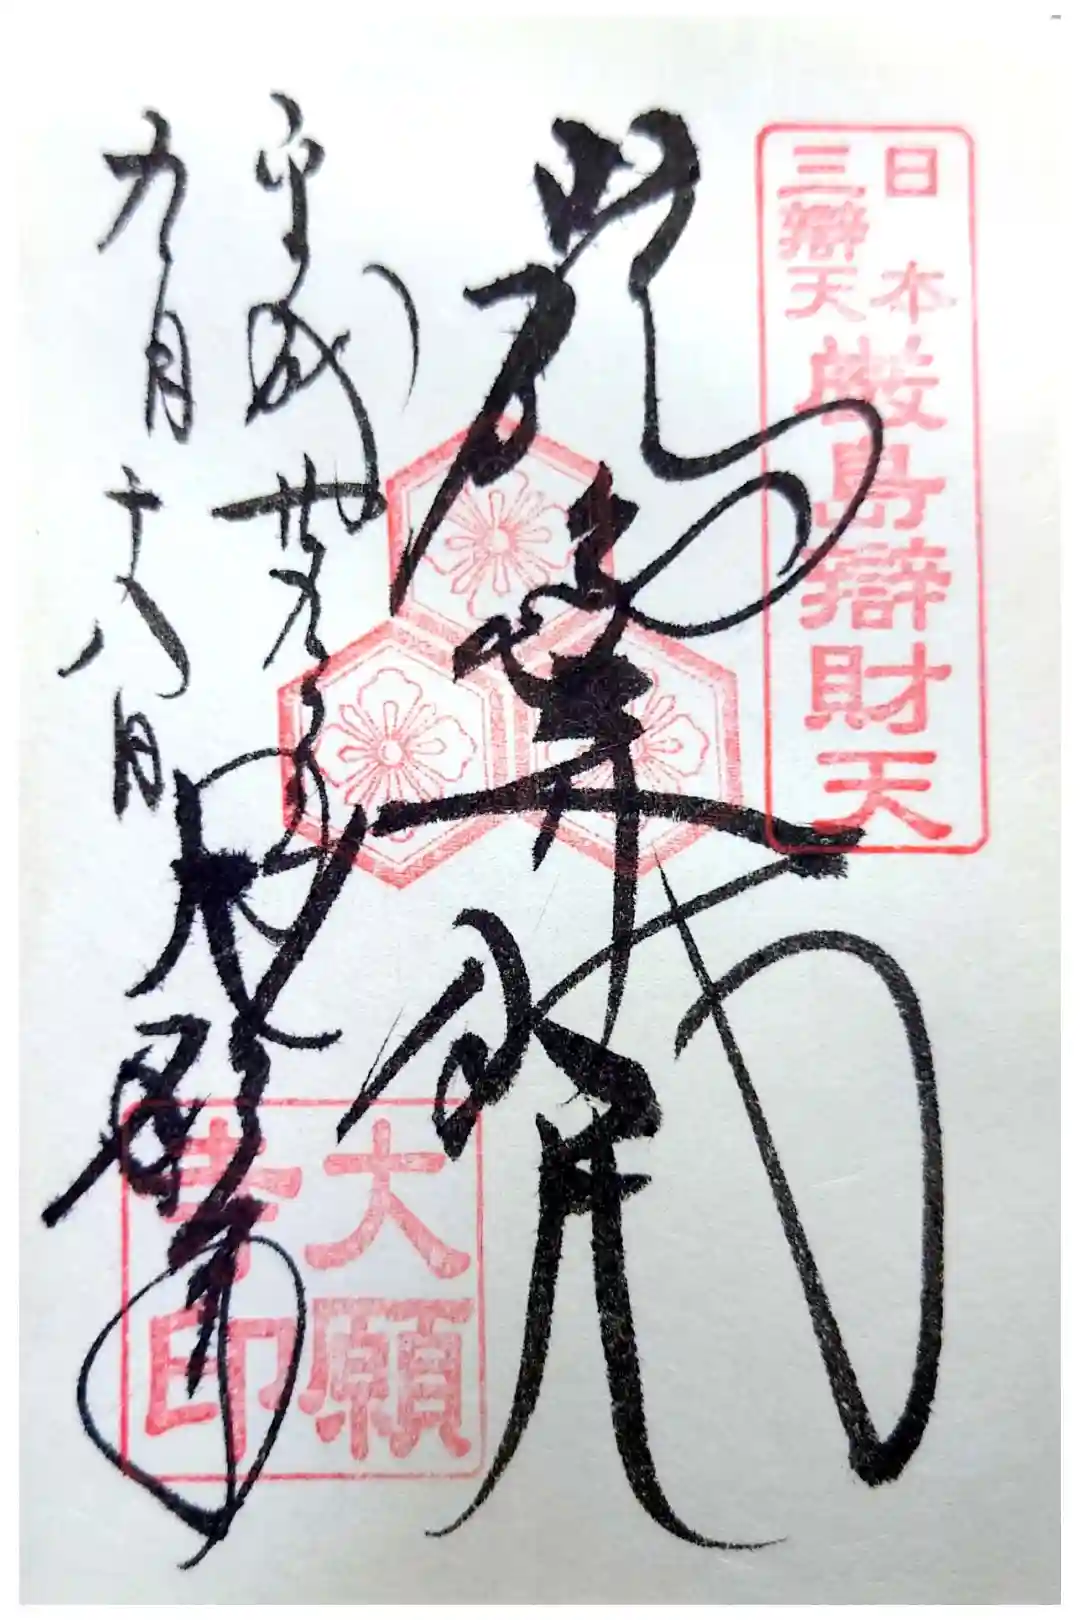 日本
三辯天
厳島辯財天
厳島弁財天
平成廿
九月十八日
大願
寺印